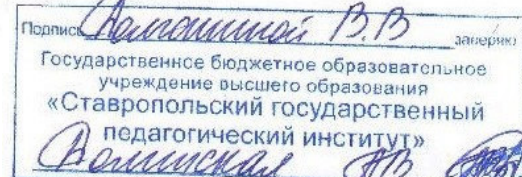 Подпись В.В заверяю
Государственное бюджетное образовательное
учреждение высшего образования
«Ставропольский государственный
педагогический институт»